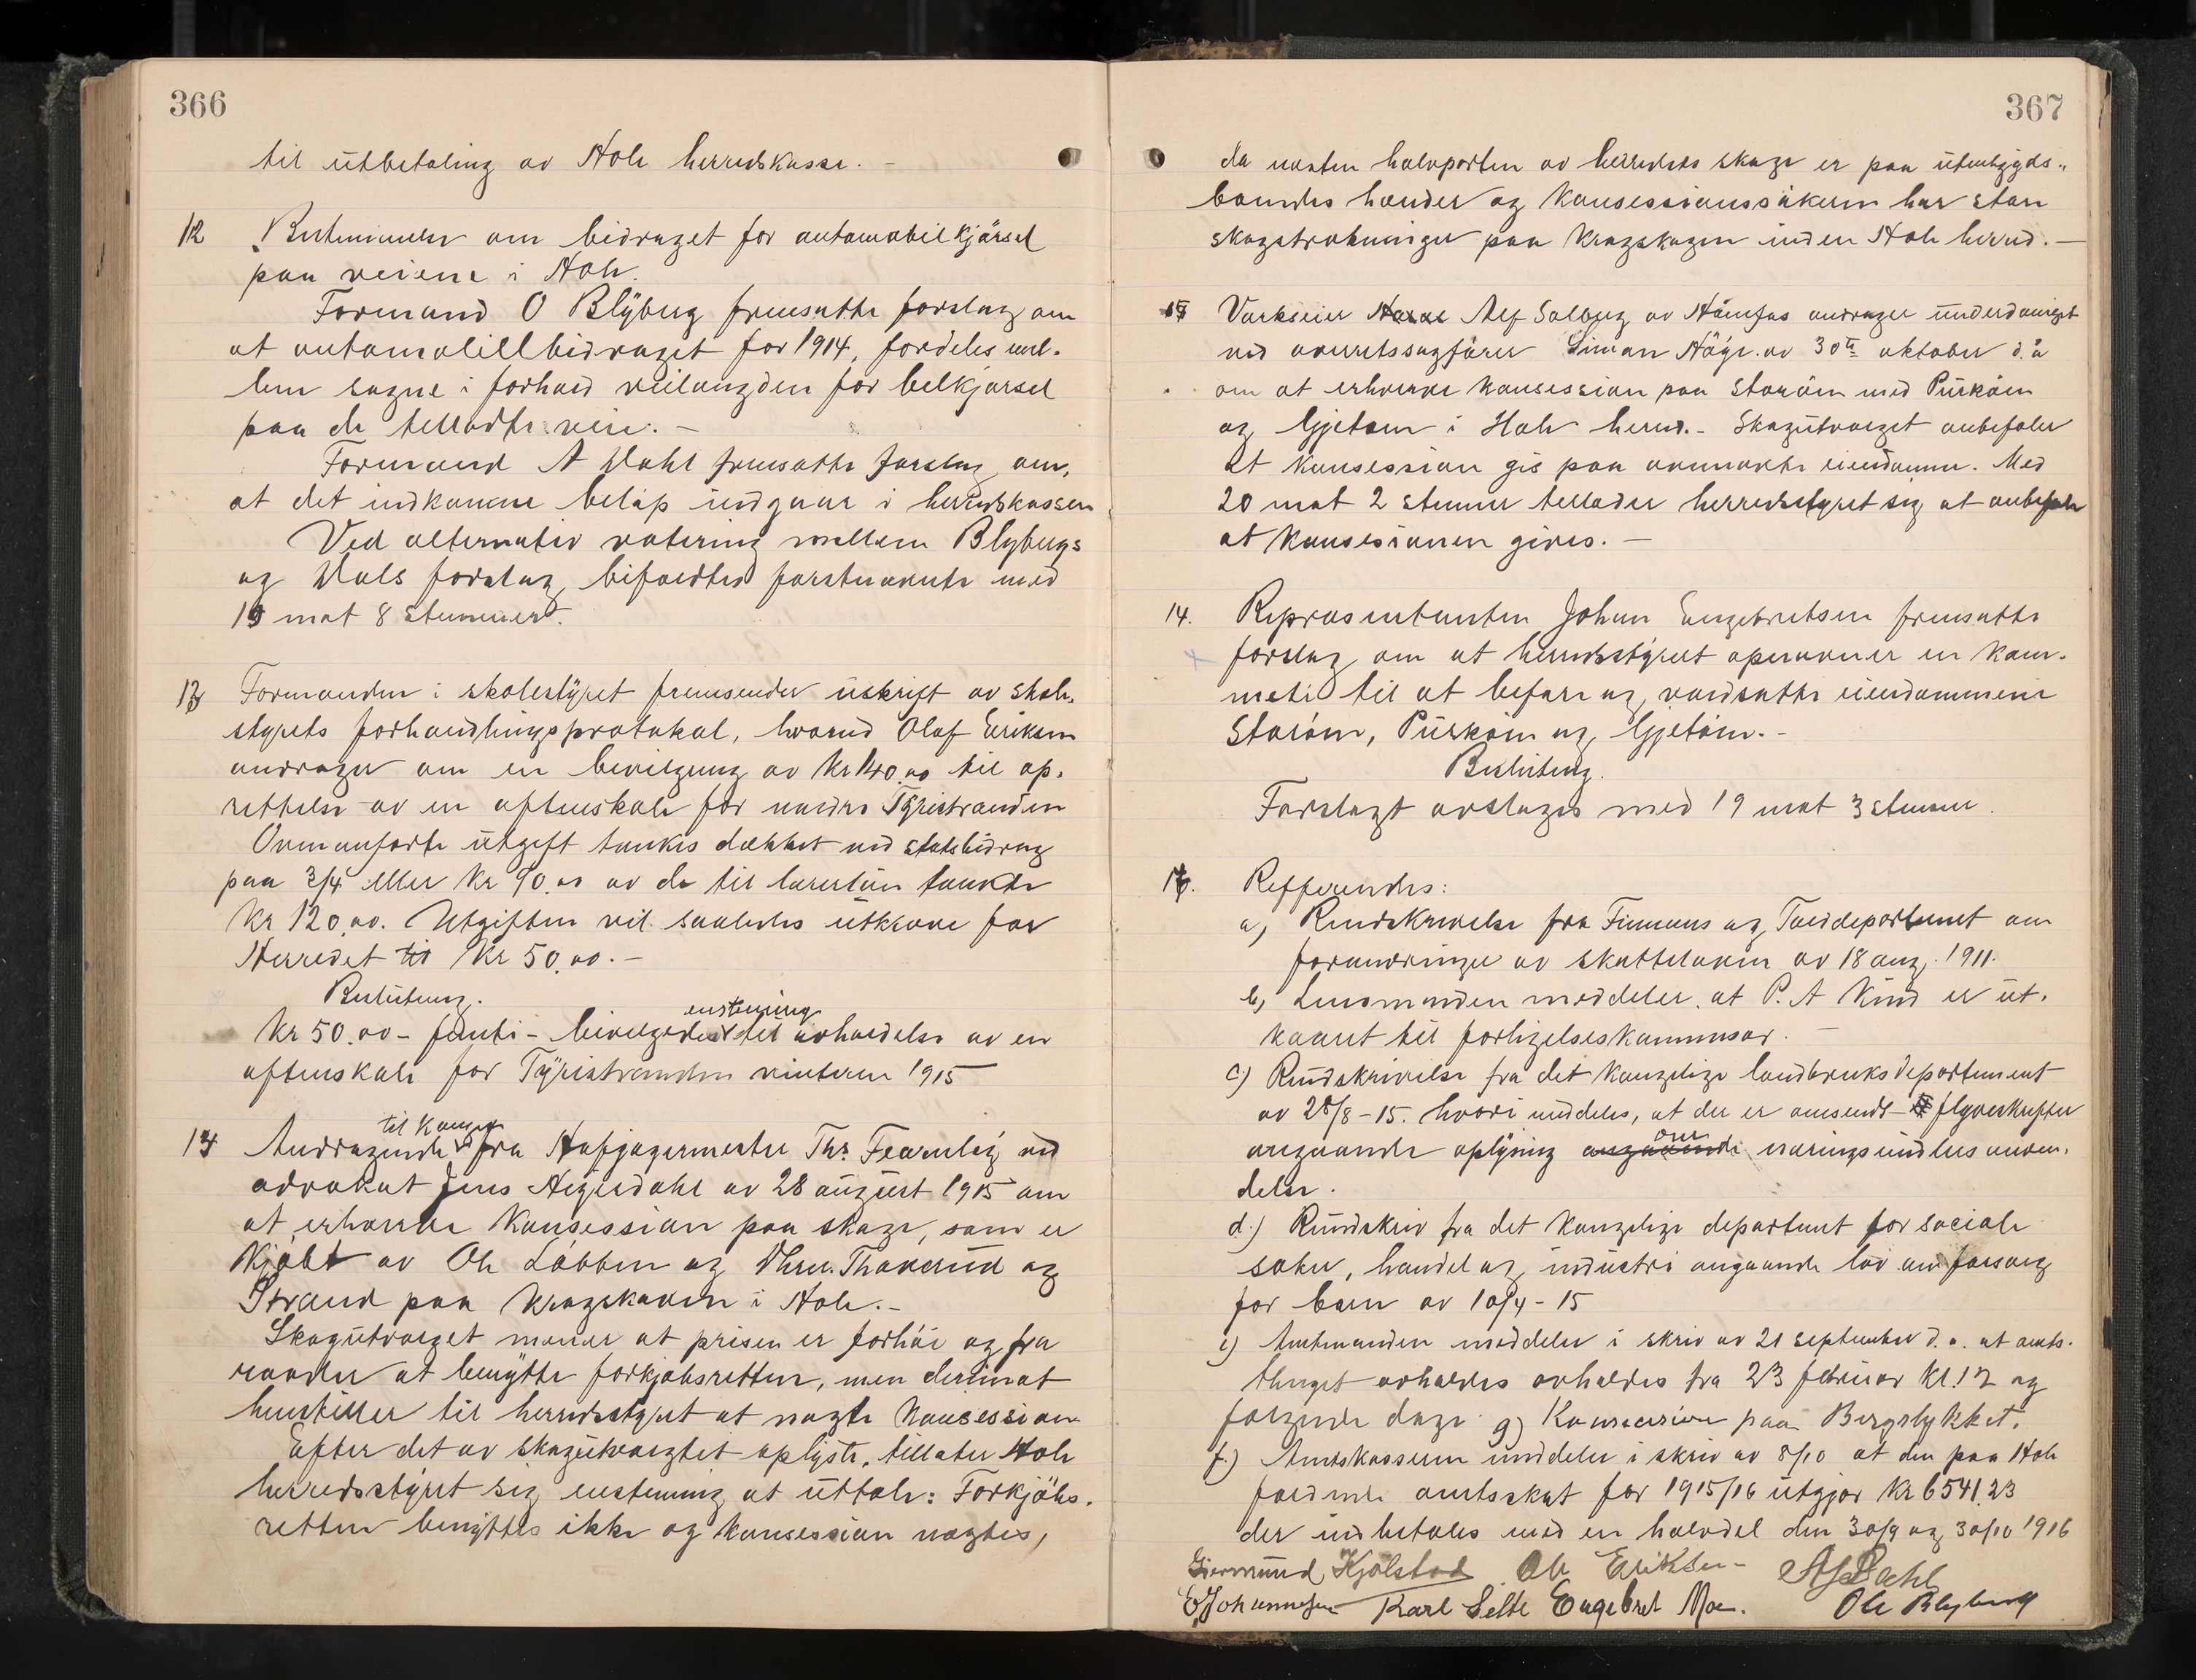 366
til utbetaling av Hole herredskasse. -
12 Bestemmelse om bidraget for automobilkjørsel
paa veiene i Hole.
Formand O Blyberg fremsatte forslag om
at automobillbidraget for 1914, fordeles mel-
lem sogne i forhold veilængden for bilkjørsel
paa de tilladte veie. -
Formand A Dahl fremsatte forslag om,
at det indkomne beløp indgaar i herredskassen
Ved alternativ votering mellem Blybergs
og Dals forslag bifaldtes førstnævnte med
19 mot 8 stemmer.
13 Formanden i skolestyret fremsender utskrift av skole-
styrets forhandlingsprotokol, hvorved Olaf Eriksen
andrager om en bevilgning av Kr 140.00 til op-
rettelse av en aftenskole for nedre Tyristranden
Ovenanførte utgift tænkes dækket ved statsbidrag
paa 3/4 eller Kr 90.00 av de til lærerløn tænkte
Kr 120.00. Utgiften vil saaledes utkræve for
Herredet til Kr 50.00. -
Beslutning.
enstemmig
Kr 50.00 - femti - bevilgedes til avholdelse av en
aftenskole for Tyristranden vinteren 1915
til Kongen
14 Andragende fra Hofjægermester Thr. Fearnley ved
advokat Jens Heyerdahl av 28 august 1915 om
at erhverve Konsession paa skoge, som er
Kjøbt av Ole Løbben og Thrn. Thaverud og
Strand paa Krogskoven i Hole. -
Skogutvalget mener at prisen er forhøi og fra
raader at benytte forkjøbsretten, men derimot
henstiller til herredsstyret at nægte Konsession
Efter det av skogutvalgtet oplyste, tillater Hole
herredsstyret sig enstemmig at uttale: Forkjøbs-
retten benyttes ikke og konsession nægtes,
367
da næsten halvparten av herredets skoge er paa utenbygds-
boendes hænder og Konsessionssøkeren har store
skogstrækninger paa Krogskogen inden Hole herred. -
15 Verkseier Alf Solberg av Hønefos andrager underdanigst
ved overretssagfører Simon Høyr. av 30te oktober d.a
om at erhverve Konsession paa Storøen med Purkøen
og Gjetøen i Hole herred. - Skogutvalget anbefaler
at Konsession gis paa nævnte eiendomme. Med
20 mot 2 stemmer tillader herredsstyret sig at anbefale
at Konsessionen gives. -
14. Repræsentanten Johan Engebretsen fremsatte
forslag om at herredsstyret opnævner en Kom-
mite til at befare og værdsætte eiendommene
Storøen, Purkøen og Gjetøen. -
Beslutning.
Forslaget avslages med 19 mot 3 stemmer.
Refferendes:
a) Rundskrivelse fra Finans og Tolddepartemet om
forandringer av skatteloven av 18 aug. 1911.
b) Lensmanden meddeler at P. A Kind er ut-
nævnt til forligelseskommisær. -
c) Rundskrivelse fra det kongelige landbruksdepartement
av 28/8-15. hvori meddeles, at der er omsendt flyveskrifter
om
angaaende oplysning angaaende næringsmidlers anven-
delse.
d.) Rundskriv fra det kongelige departemt for sociale
saker, handel og industri angaaende lov om forsorg
for barn av 10/4-15
e) Amtmanden meddeler i skriv av 21 september d.a. at amts-
thinget avholdes avholdes fra 23 februar Kl. 12 og
følgende dage g) Konsession paa Bergstykket.
f.) Amtskassereren meddeler i skriv av 8/10 at den paa Hole
faldende amtsskat for 1915/16 utgjør Kr 6541.23
der indbetales med en halvdel den 30/9 og 30/10 1916
Giermund Kjølstad Ole Eriksen A Dahl
E Johannesen Karl Selte Engebret Moe. Ole Blyberg